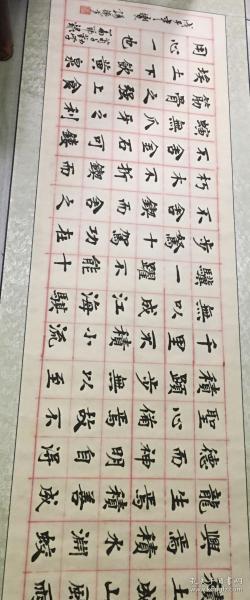 土成山風雨
興焉積水淵蛟
龍生焉積善成
德而神明自得
聖心備焉故不
積蹞步無以至
千里不積小流
無以成江海騏
驥一躍不能十
步駑十駕功在
不舍鍥而舍之
朽木不折鍥而
不舍金石可鏤
螾無爪牙之利
筋骨之強上食
埃土下飲黃泉
用心一也